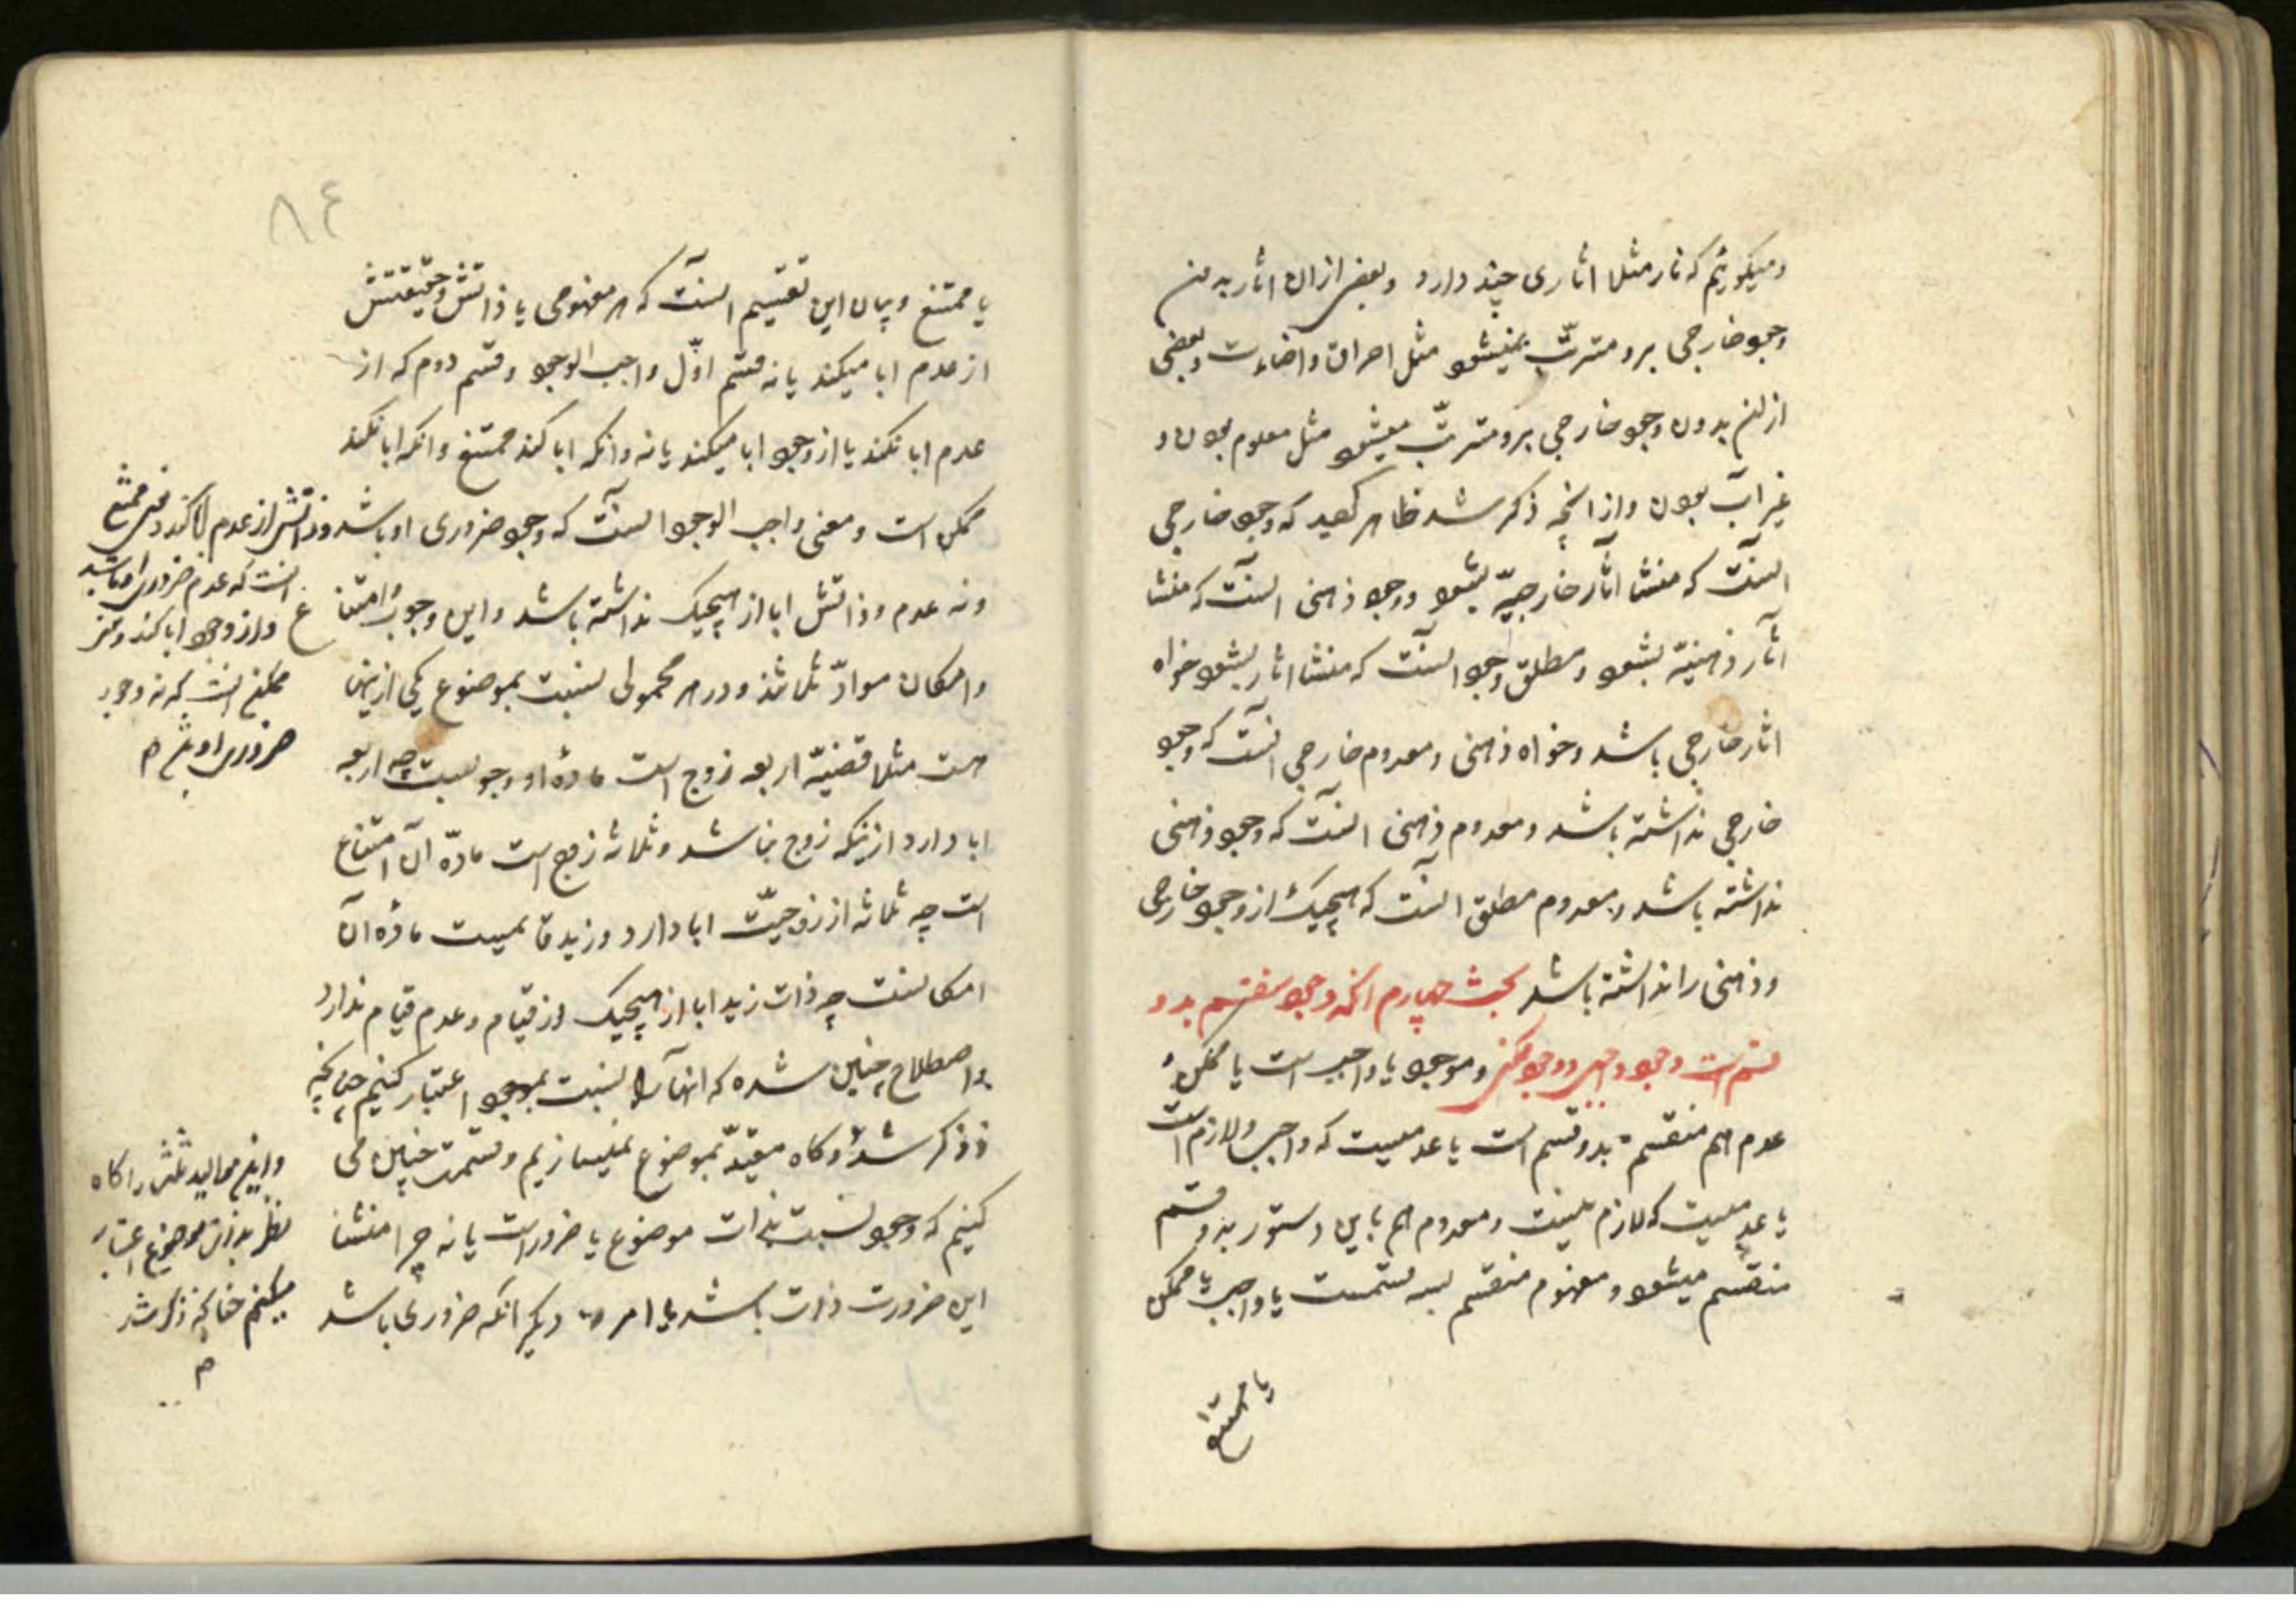 ومیکوئیم که نار مثلا اثاری چند دارد وبعضی ازان اثار بدون
وجود خارجی برو مترتّب نمیشود مثل احراق واضاءت وبعضی
ازان بدون وجود خارجی برو مترتّب میشود مثل معلوم بودن و
غیر آب بودن واز انچه ذکر شد ظاهر کردید که وجود خارجی
آنست که منشا آثار خارجیّه بشود ووجود ذهنی آنست که منشا
آثار ذهنیّه بشود ومطلق وجود آنست که منشا اثار بشود خواه
اثار خارجی باشد وخواه ذهنی ومعدوم خارجی آنست که وجود
خارجی نداشته باشد ومعدوم ذهنی آنست که وجود ذهنی
نداشته باشد ومعدوم مطلق آنست که هیچیک از وجود خارجی
وذهنی را نداشته باشد بحث چهارم انکه وجود منقسم بدو
قسم است وجود واجبی ووجود ممکنی وموجود یا واجب است یا ممکن و
عدم هم منقسم بدو قسم است یا عدمیست که واجب ولازم است
یا عدمیست که لازم نیست ومعدوم هم باین دستور بدو قسم
منقسم میشود ومفهوم منقسم بسه قسمست یا واجب یا ممکن
یا ممتنع
٨٤
یا ممتنع وبیان این تقسیم آنست که هر مفهومی یا ذاتش وحقیقتش
از عدم ابا میکند یا نه قسم اوّل واجب الوجود وقسم دوم که از
عدم ابا نکند یا از وجود ابا میکند یا نه وانکه ابا کند ممتنع وانکه ابا نکند
ممکن است ومعنی واجب الوجود آنست که وجود ضروری او باشد وذاتش از عدم ابا کند ومعنی ممتنع
آنست که عدم ضروری او باشد
واز وجود ابا کند ومعنی
ممکن آنست که نه وجود
ضروری او باشد م
ونه عدم وذاتش ابا از هیچیک نداشته باشد واین وجوب وامتناع
وامکان موادّ ثلاثند ودر هر محمولی نسبت بموضوع یکی ازینها
هست مثلا قضیّه اربعه زوج است مادهٔ او وجوبست چه اربعه
ابا دارد ازینکه زوج نباشد وثلاثه زوج است مادّه آن امتناع
است چه ثلاثه از زوجیّت ابا دارد وزید قایمست مادّه آن
امکانست چه ذات زید ابا از هیچیک از قیام وعدم قیام ندارد
واصطلاح چنین شده که انها را نسبت بوجود اعتبار کنیم چنانچه
ذکر شد وکاه مقیّد بموضوع نمیسازیم وقسمت چنین می
کنیم که وجود نسبت بذات موضوع یا ضروراست یا نه چرا منشا
این ضرورت ذات باشد یا امر دیکر انکه ضروری باشد
را کاه
نظر بذات موضوع اعتبار
میکنیم چنانچه ذکر شد
م